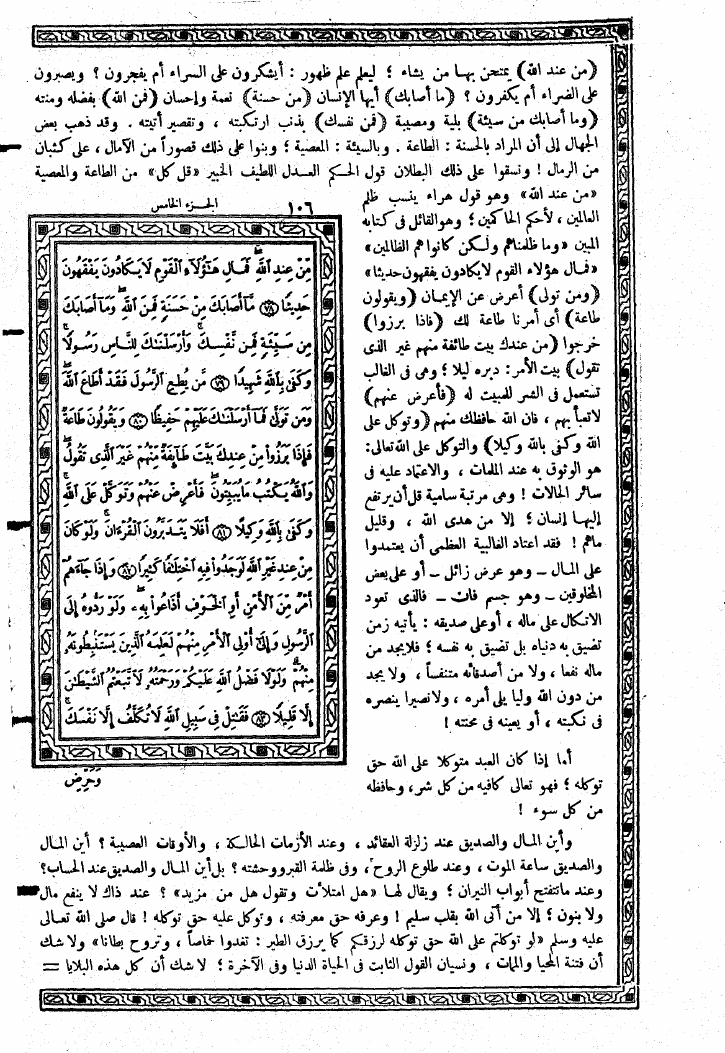 (من عند الله) يمتحن بها من يشاء ؛ ليعلم علم ظهور : أيشكرون على السراء أم يفجرون ؟ ويصبرون
على الضراء أم يكفرون ؟ (ما أصابك) أيها الإنسان (من حسنة) نعمة وإحسان (فمن الله) بفضله ومنته
(وما أصابك من سيئة) بلية ومصيبة (فمن نفسك) بذنب ارتكبته ، وتقصير أتيته . وقد ذهب بعض
الجهال إلى أن المراد بالحسنة : الطاعة . وبالسيئة : المعصية ؛ وبنوا على ذلك قصوراً من الآمال ، على كثبان
من الرمال ! ونسقوا على ذلك البطلان قول الحكم العدل اللطيف الخبير «قل كل» من الطاعة والمعصية
«من عند الله» وهو قول هراء ينسب ظلم
العالمين ، لأحكم الحاكمين ؛ وهو القائل فى كتابه
المبين «وما ظلمناهم ولكن كانوا هم الظالمين»
«فمال هؤلاء القوم لا يكادون يفقهون حديثا»
(ومن تولى) أعرض عن الإيمان (ويقولون
طاعة) أى أمرنا طاعة لك (فاذا برزوا)
خرجوا (من عندك بيت طائفة منهم غير الذى
تقول) بيت الأمر : دبره ليلا ؛ وهى فى الغالب
تستعمل فى الشر المبيت له (فأعرض عنهم)
لا تعبأ بهم ، فان الله حافظك منهم (وتوكل على
الله وكفى بالله وكيلا) والتوكل على الله تعالى:
هو الوثوق به عند الملمات ، والاعتماد عليه فى
سائر الحالات ! وهى مرتبة سامية قل أن يرتفع
إليها إنسان ؛ إلا من هدى الله ، وقليل
ماهم ! فقد اعتاد الغالبية العظمى أن يعتمدوا
على المال ــ وهو عرض زائل ــ أو على بعض
المخلوقين ــ وهو جسم فان ــ فالذى تعود
الاتكال على ماله ، أو على صديقه : يأتيه زمن
تضيق به دنياه بل تضيق به نفسه ؛ فلا يجد من
ماله نفعا ، ولا من أصدقائه متنفساً ، ولا يجد
من دون الله وليا يلى أمره ، ولا نصيرا ينصره
فى نكبته ، أو يعينه فى محنته !
أما إذا كان العبد متوكلا على الله حق
توكله ؛ فهو تعالى كافيه من كل شر ، وحافظه
من كل سوء !
١٠٦ الجزء الخامس
مِنْ عِندِ ٱللَّهِ فَمَالِ هَٰٓؤُلَآءِ ٱلْقَوْمِ لَا يَكَادُونَ يَفْقَهُونَ
حَدِيثًا ٧٨ مَّآ أَصَابَكَ مِنْ حَسَنَةٍ فَمِنَ ٱللَّهِ وَمَآ أَصَابَكَ
مِن سَيِّئَةٍ فَمِن نَّفْسِكَ وَأَرْسَلْنَٰكَ لِلنَّاسِ رَسُولًا
وَكَفَىٰ بِٱللَّهِ شَهِيدًا ٧٩ مَّن يُطِعِ ٱلرَّسُولَ فَقَدْ أَطَاعَ ٱللَّهَ
وَمَن تَوَلَّىٰ فَمَآ أَرْسَلْنَٰكَ عَلَيْهِمْ حَفِيظًا ٨٠ وَيَقُولُونَ طَاعَةٌ
فَإِذَا بَرَزُوا۟ مِنْ عِندِكَ بَيَّتَ طَآئِفَةٌ مِّنْهُمْ غَيْرَ ٱلَّذِى تَقُولُ
وَٱللَّهُ يَكْتُبُ مَا يُبَيِّتُونَ فَأَعْرِضْ عَنْهُمْ وَتَوَكَّلْ عَلَى ٱللَّهِ
وَكَفَىٰ بِٱللَّهِ وَكِيلًا ٨١ أَفَلَا يَتَدَبَّرُونَ ٱلْقُرْءَانَ وَلَوْ كَانَ
مِنْ عِندِ غَيْرِ ٱللَّهِ لَوَجَدُوا۟ فِيهِ ٱخْتِلَٰفًا كَثِيرًا ٨٢ وَإِذَا جَآءَهُمْ
أَمْرٌ مِّنَ ٱلْأَمْنِ أَوِ ٱلْخَوْفِ أَذَاعُوا۟ بِهِۦ وَلَوْ رَدُّوهُ إِلَى
ٱلرَّسُولِ وَإِلَىٰٓ أُو۟لِى ٱلْأَمْرِ مِنْهُمْ لَعَلِمَهُ ٱلَّذِينَ يَسْتَنۢبِطُونَهُۥ
مِنْهُمْ وَلَوْلَا فَضْلُ ٱللَّهِ عَلَيْكُمْ وَرَحْمَتُهُۥ لَٱتَّبَعْتُمُ ٱلشَّيْطَٰنَ
إِلَّا قَلِيلًا ٨٣ فَقَٰتِلْ فِى سَبِيلِ ٱللَّهِ لَا تُكَلَّفُ إِلَّا نَفْسَكَ
وَحَرِّضِ
وأين المال والصديق عند زلزلة العقائد ، وعند الأزمات الحالكة ، والأوقات العصيبة ؟ أين المال
والصديق ساعة الموت ، وعند طلوع الروح ، وفى ظلمة القبر ووحشته ؟ بل أين المال والصديق عند الحساب؟
وعند ما تتفتح أبواب النيران ؛ ويقال لها «هل امتلأت وتقول هل من مزيد» ؟ عند ذاك لا ينفع مال
ولا بنون ؛ إلا من أتى الله بقلب سليم ! وعرفه حق معرفته ، وتوكل عليه حق توكله ! قال صلى الله تعالى
عليه وسلم «لو توكلتم على الله حق توكله لرزقكم كما يرزق الطير : تغدوا خماصاً ، وتروح بطانا» ولا شك
أن فتنة المحيا والممات ، ونسيان القول الثابت فى الحياة الدنيا وفى الآخرة ؛ لا شك أن كل هذه البلايا =